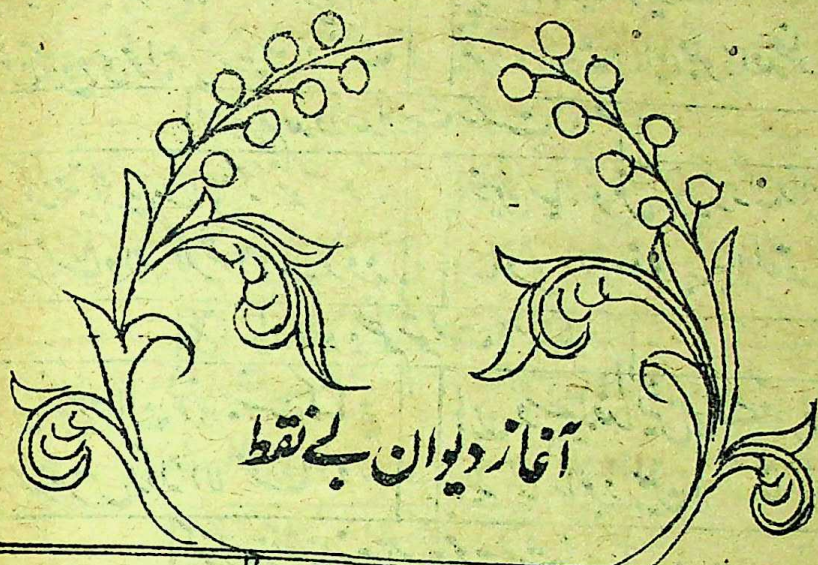 آغاز دیوان بے نقط